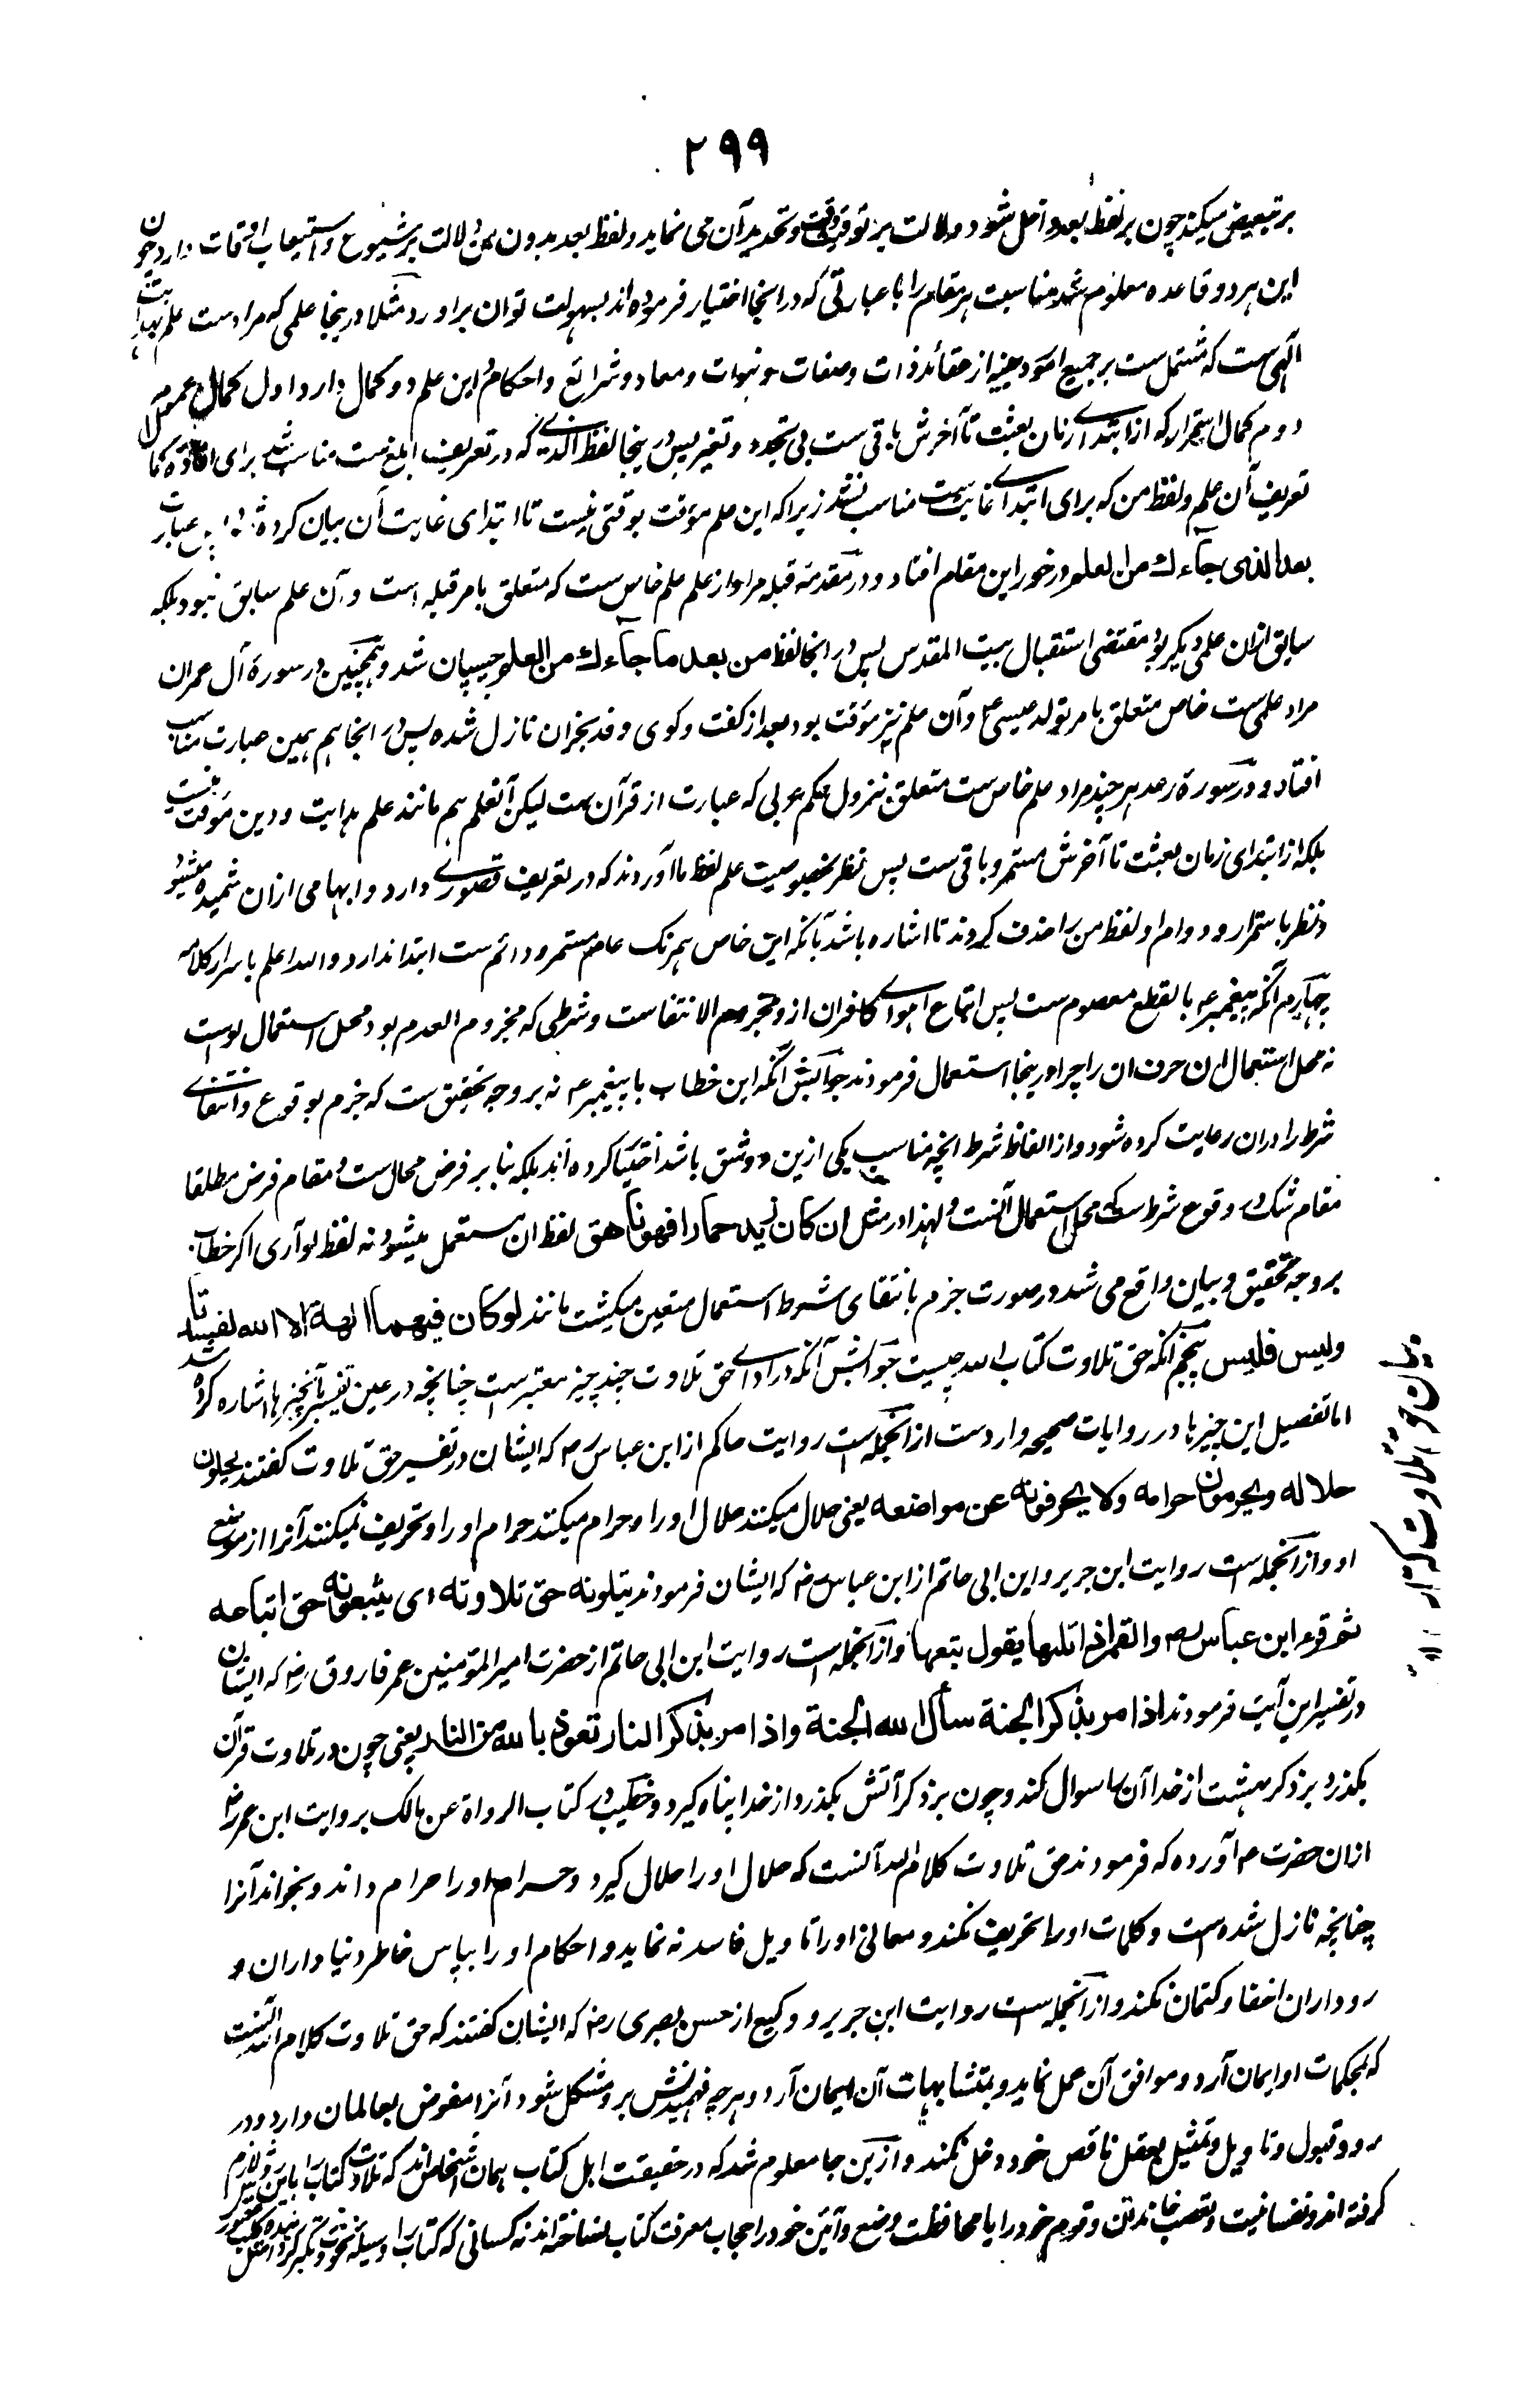 ۲۹۹
بر تبعیض میکند چون بر لفظ بعد داخل شود دلالت بر توقیت وقت و تحدید آن می نماید و لفظ بعد بدون من دلالت بر شیوع و استیعاب اوقات دارد چون
این هر دو قاعده معلوم شد مناسبت هر مقام را با عبارتی که در انجا اختیار فرموده اند بسهولت توان بر اورد مثلا درینجا علمی که مراد ست علم هدایت
الهی ست که مشتمل ست بر جمیع امور دینیه از عقائد ذات و صفات و نبوات و معاد و شرائع و احکام و این علم دو کمال دارد اول کمال عموم
دوم کمال استمرار که از ابتدای زمان بعثت تا آخرش باقی ست بی تجدد و تغیر پس درینجا لفظ الذی که در تعریف ابلغ ست مناسب شد برای افاده کمال
تعریف آن علم و لفظ من که برای ابتدای غایت ست مناسب نشد زیرا که این علم موقت بوقتی نیست تا ابتدای غایت آن بیان کرده شود عبارت
بعد الذی جآءك من العلم در خور این مقام افتاد و در مقدمه قبله مراد از علم علم خاص ست که متعلق بامر قبله است و آن علم سابق نبود بلکه
سابق ازان علمی دیگر بود مقتضی استقبال بیت المقدس پس در انجا لفظ من بعد ما جآءك من العلم چسپان شد و همچنین در سورۀ آل عمران
مراد علمی ست خاص متعلق بامر تولد عیسی ع و آن علم نیز موقت بود بعد از گفت و گوی وفد نجران نازل شده پس در انجا هم همین عبارت مناسب
افتاد و در سورۀ رعد هر چند مراد علم خاص ست متعلق بنزول حکم عربی که عبارت از قرآن ست لیکن آنعلم هم مانند علم هدایت و دین موقت نیست
بلکه از ابتدای زمان بعثت تا آخرش مستمر و باقی ست پس نظر بخصوصیت علم لفظ ما آوردند که در تعریف قصوری دارد و ابهامی ازان فهمیده میشود
و نظر باستمرار و دوام او لفظ من را حذف کردند تا اشاره باشد بآنکه این خاص همرنگ عام مستمر و دائم ست ابتدا ندارد والله اعلم باسرار کلامه
چهارم آنکه پیغمبر ع بالقطع معصوم ست پس اتباع اهوای کافران ازو مجزوم الانتفاست و شرطی که مجزوم العدم بود محل استعمال لوست
نه محل استعمال ان حرف ان را چرا درینجا استعمال فرمودند جوابش آنکه این خطاب با پیغمبر ع نه بر وجه تحقیق ست که جزم بوقوع و انتفای
شرط را دران رعایت کرده شود و از الفاظ شرط انچه مناسب یکی ازین دو شق باشد اختیار کرده اند بلکه بنا بر فرض محال ست و مقام فرض مطلقا
مقام شک در وقوع شرط ست که محل استعمال آنست و لهذا در مثل ان کان زید حمارا فهو ناهق لفظ ان مستعمل میشود نه لفظ لو آری اگر خطاب
بر وجه تحقیق و بیان واقع می شد در صورت جزم بانتفای شرط استعمال متعین میگشت مانند لو کان فیهما الهة الا الله لفسدتا
ولیس فلیس پنجم آنکه حق تلاوت کتاب الله چیست جوابش آنکه در ادای حق تلاوت چند چیز معتبرست چنانچه در عین تفسیر بآنچیزها اشاره کرده شد
اما تفصیل این چیزها در روایات صحیحه وارد ست از انجمله است روایت حاکم از ابن عباس رض که ایشان در تفسیر حق تلاوت گفتند یحلون
حلاله ویحرمون حرامه ولا یحرفونه عن مواضعه یعنی حلال میکنند حلال او را و حرام میکنند حرام او را و تحریف نمیکنند آنرا از موضع
او و از انجمله است روایت ابن جریر و ابن ابی حاتم از ابن عباس رض که ایشان فرمودند یتلونه حق تلاوته ای یتبعونه حق اتباعه
ثم قرء ابن عباس رض والقمر اذا تلٰها یقول یتبعها و از انجمله است روایت ابن ابی حاتم از حضرت امیر المؤمنین عمر فاروق رض که ایشان
در تفسیر این آیت فرمودند اذا مر بذکر الجنة سأل الله الجنة واذا مر بذکر النار تعوذ بالله من النار یعنی چون در تلاوت قرآن
بگذرد بر ذکر بهشت از خدا آن را سوال کند و چون بر ذکر آتش بگذرد از خدا پناه گیرد و خطیب در کتاب الرواة عن مالک بروایت ابن عمر رض
ازان حضرت ص آورده که فرمودند حق تلاوت کلام الله آنست که حلال او را حلال گیرد و حرام او را حرام داند و بخواند آنرا
چنانچه نازل شده ست و کلمات او را تحریف نکند و معانی او را تاویل فاسد نه نماید و احکام او را بپاس خاطر دنیا داران و
روداران اخفا و کتمان نکند و از انجمله ست روایت ابن جریر و وکیع از حسن بصری رض که ایشان گفتند که حق تلاوت کلام الله آنست
که بمحکمات او ایمان آرد و موافق آن عمل نماید و بمتشابهات آن ایمان آرد و هر چه فهمیدنش برو مشکل شود آنرا مفوض بعالمان دارد و در
رد و قبول و تاویل و تمثیل بعقل ناقص خود دخل نکند و ازین جا معلوم شد که در حقیقت اهل کتاب همان اشخاص اند که تلاوت کتاب را باین روش لازم
گرفته اند و نفسانیت و تعصب خاندان و قوم خود را یا محافظت وضع و آئین خود را حجاب معرفت کتاب نساخته اند نه کسانی که کتاب را وسیله نخوت و تکبر
بیان حق تلاوت که